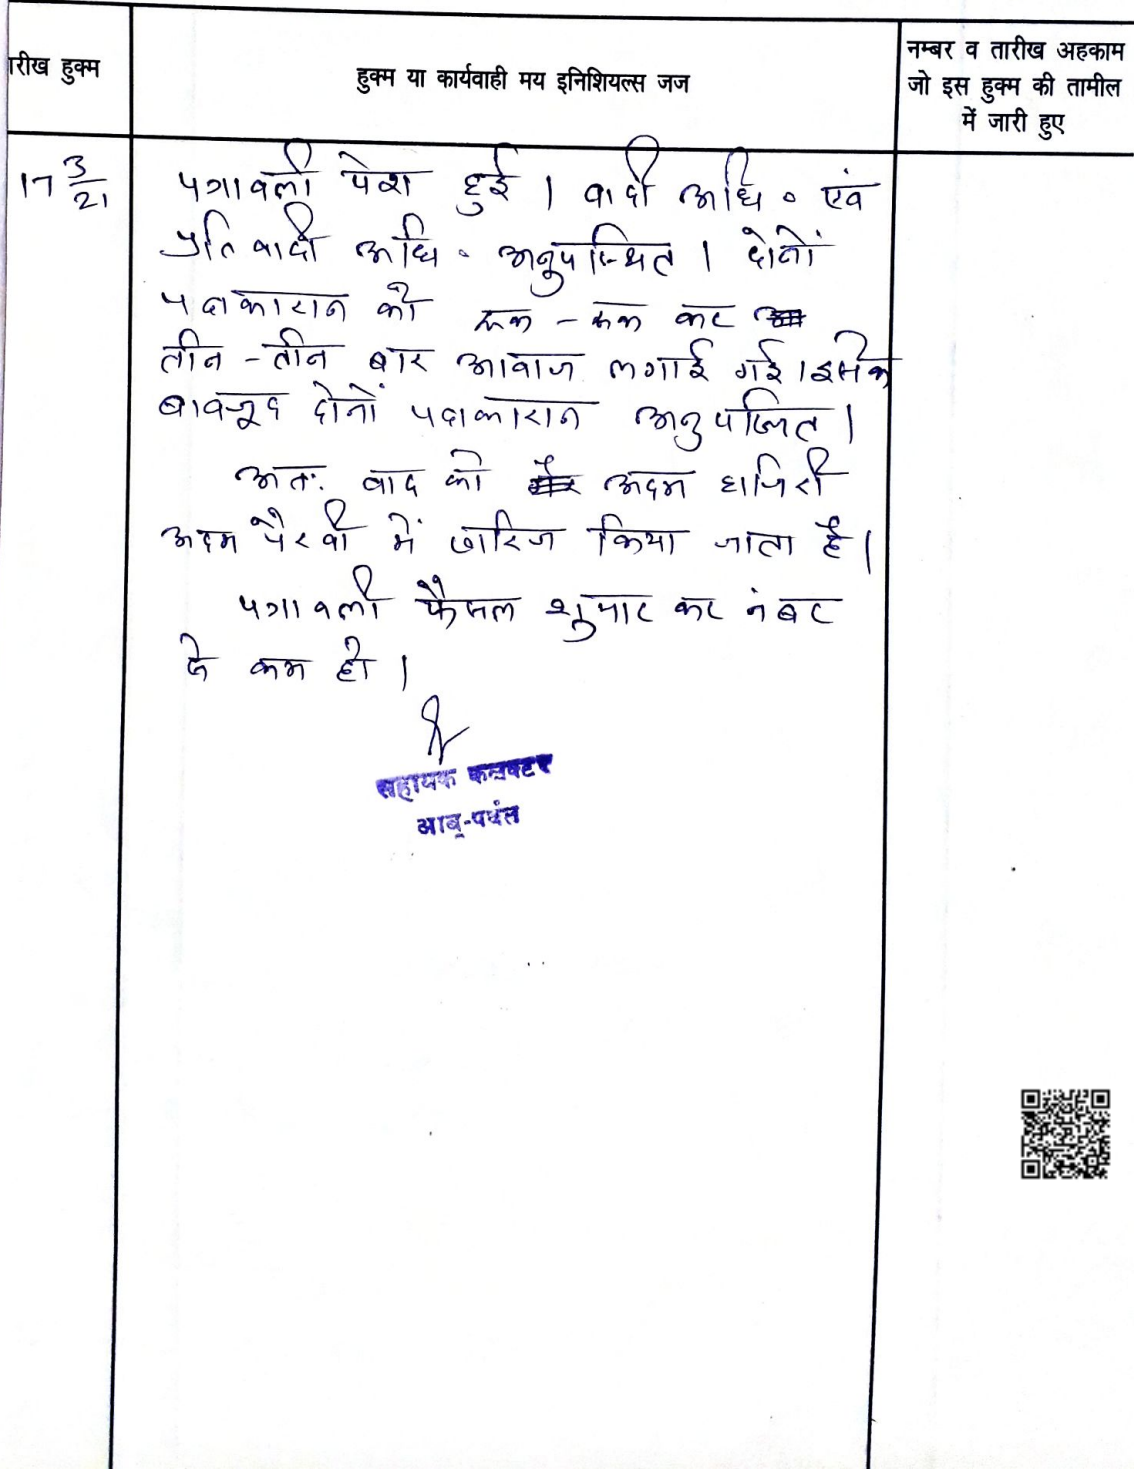 रीख हुक्म
हुक्म या कार्यवाही मय इनिशियल्स जज
नम्बर व तारीख अहकाम
जो इस हुक्म की तामील
में जारी हुए
17 3/21
पत्रावली पेश हुई । वादी अधि० एवं
प्रतिवादी अधि० अनुपस्थित । दोनों
पक्षकारान को रूक - रूक कर
तीन - तीन बार आवाज लगाई गई । इसके
बावजूद दोनों पक्षकारान अनुपस्थित ।
अतः वाद को अदम हाजिरी
अदम पैरवी में खारिज किया जाता है ।
पत्रावली फैसल शुमार कर नंबर
से कम हो ।
सहायक कलक्टर
आबू-पर्वत